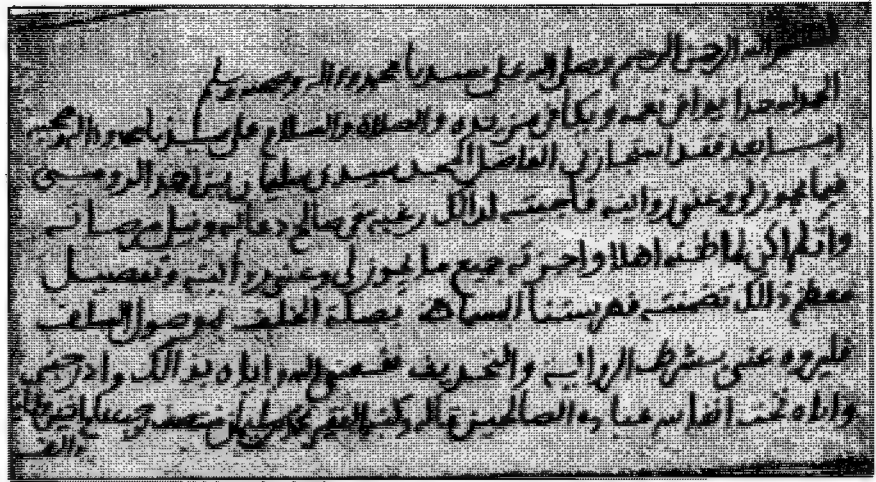 بسم الله الرحمن الرحيم وصلى الله على سيدنا محمد وءاله وصحبه وسلم
الحمد لله حمدا يوافي نعمه ويكافئ مزيده والصلاة والسلام على سيدنا محمد وءاله وصحبه
اما بعد فقد استجازني الفاضل سيدي سليمان بن احمد
فيما يجوز لي وعني روايته فأجبته لذالك رغبة في صالح دعائه ونيل مرضاته
وان لم اكن لما ظنه اهلا واجزته جميع ما يجوز لي وعني روايته وتفصيل
معظم ذلك تضمنته فهرستنا المسماة بصلة الخلف بموصول السلف
فليروه عني بشرطه الرواية والتحديث نفعني الله واياه بذالك وادرجني
واياه تحت انفاس عباده الصالحين قاله وكتبه الفقير محمد بن سليمان
والف